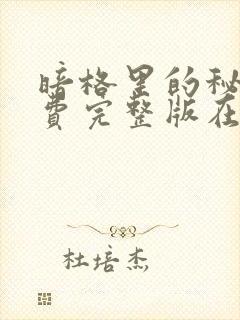 暗格里的秘
费完整版在
杜培杰